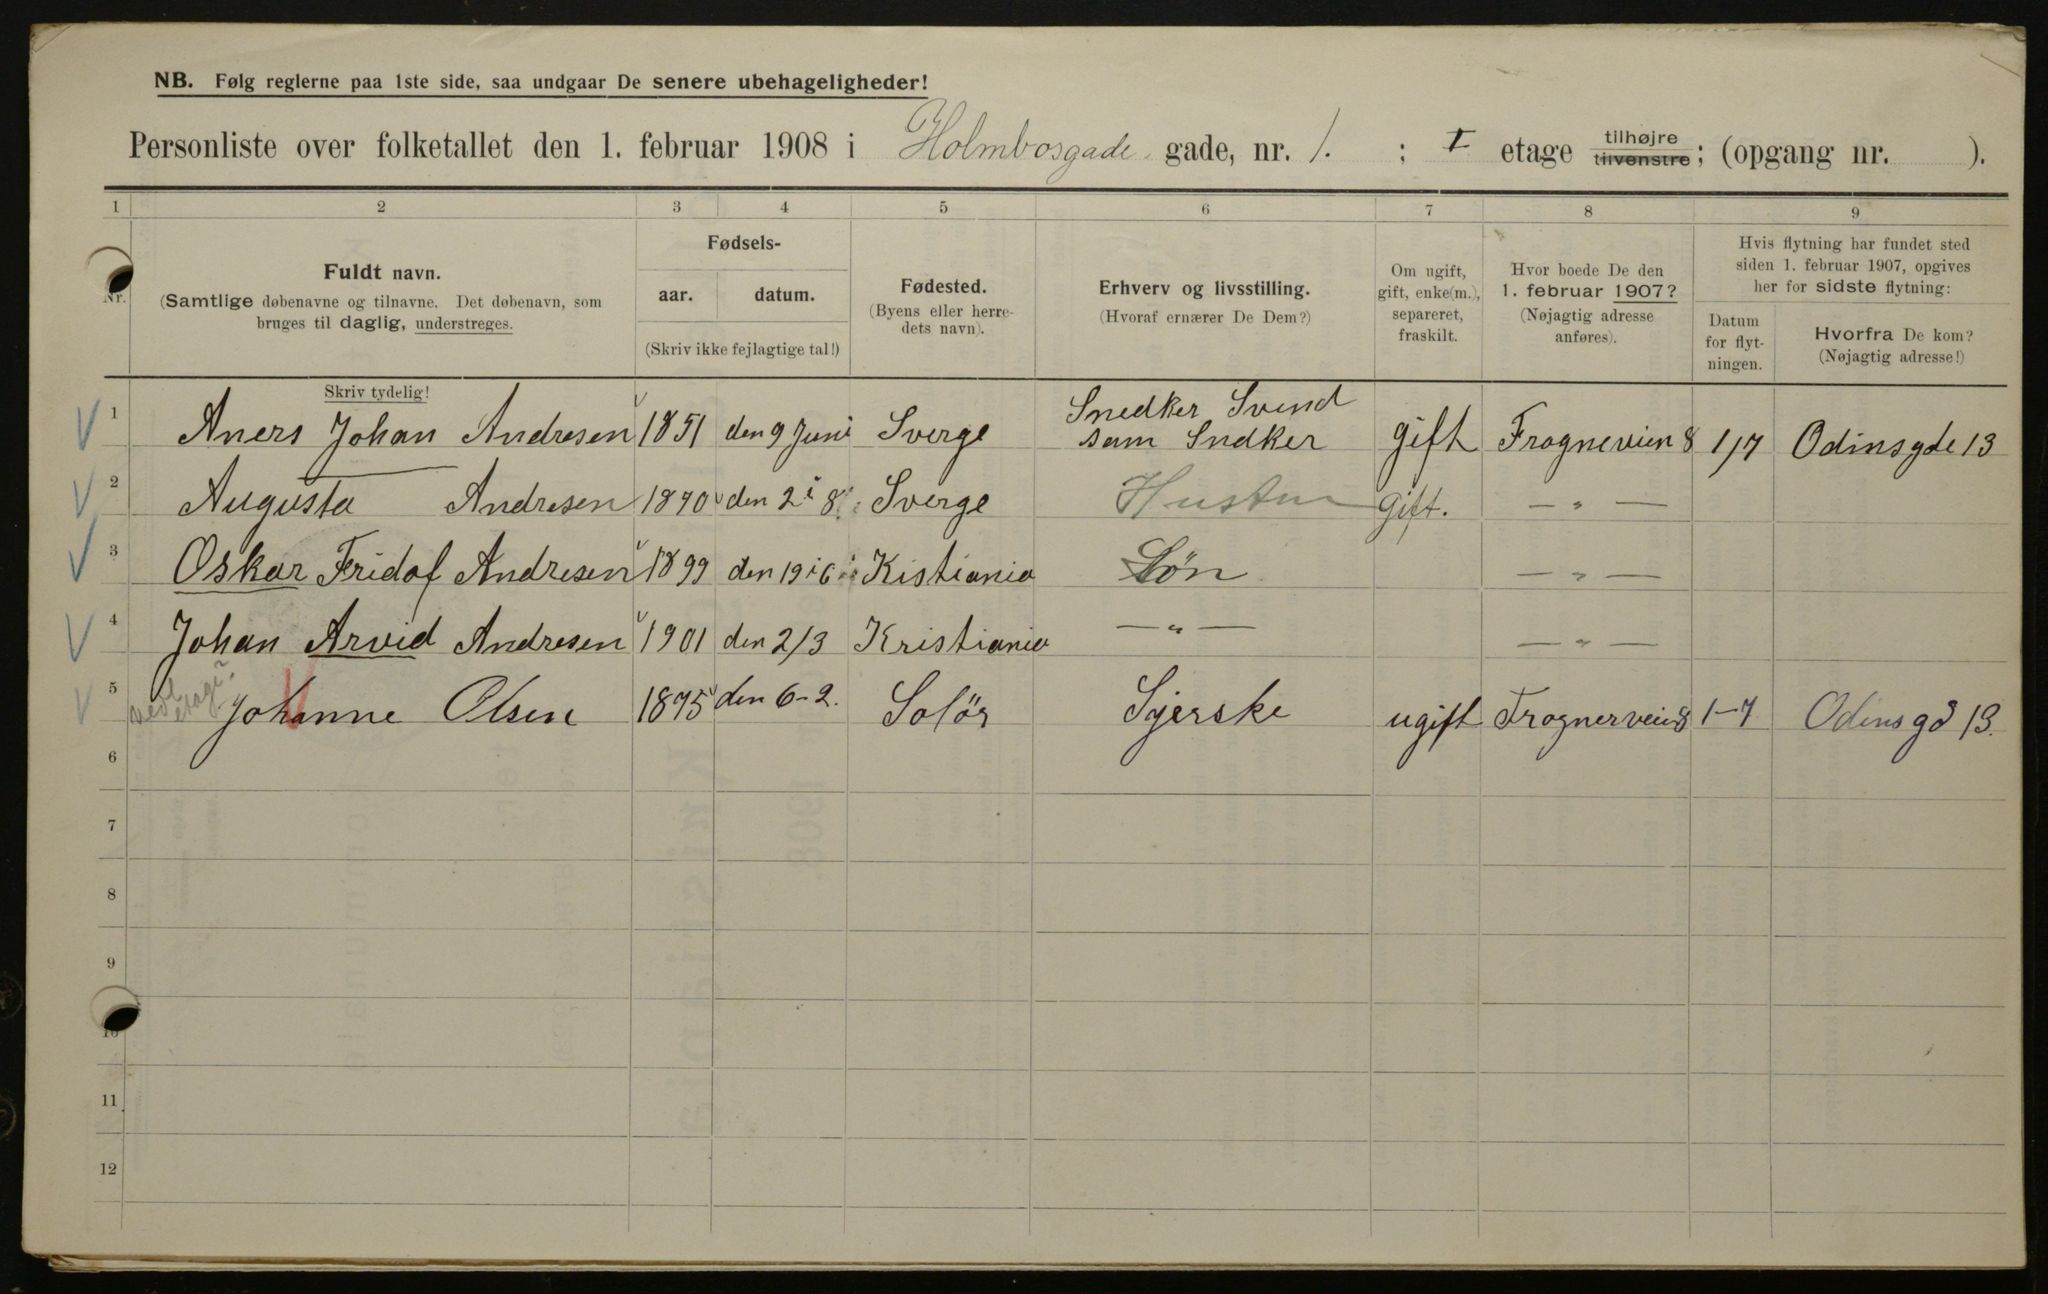 NB. Følg reglerne paa 1ste side, saa undgaar De senere ubehageligheder!
Personliste over folketallet den 1. februar 1908 i Holmbosgade gade, nr. 1. ; I etage tilhøjre tilvenstre; (opgang nr. ).
1 2 3 4 5 6 7 8 9
Nr.
Fuldt navn.
(Samtlige døbenavne og tilnavne. Det døbenavn, som
bruges til daglig, understreges.
Skriv tydelig!
Fødsels-
aar. datum.
(Skriv ikke fejlagtige tal!)
Fødested.
(Byens eller herre-
dets navn).
Erhverv og livsstilling.
(Hvoraf ernærer De Dem?)
Om ugift,
gift, enke(m.),
separeret,
fraskilt.
Hvor boede De den
1. februar 1907?
(Nøjagtig adresse
anføres).
Hvis flytning har fundet sted
siden 1. februar 1907, opgives
her for sidste flytning:
Datum
for flyt-
ningen.
Hvorfra De kom?
(Nøjagtig adresse!)
1 Aners Johan Andresen 1851 den 9 Juni Sverge Snedker Svend
sam Sndker gift Frogneveien 8 1/7 Odinsgde 13
2 Augusta Andresen 1870 den 2 i 8 Sverge Hustru Gift. — " —
3 Oskar Fridof Andresen 1899 den 19 i 6 Kistiania Sön — " —
4 Johan Arvid Andresen 1901 den 2/3 Kristiania — " — — " —
5 Johanne Olsen 1875 den 6-2. Solör Syerske ugift Frognerveien 8 1-7 Odinsgd 13.
6
7
8
9
10
11
12